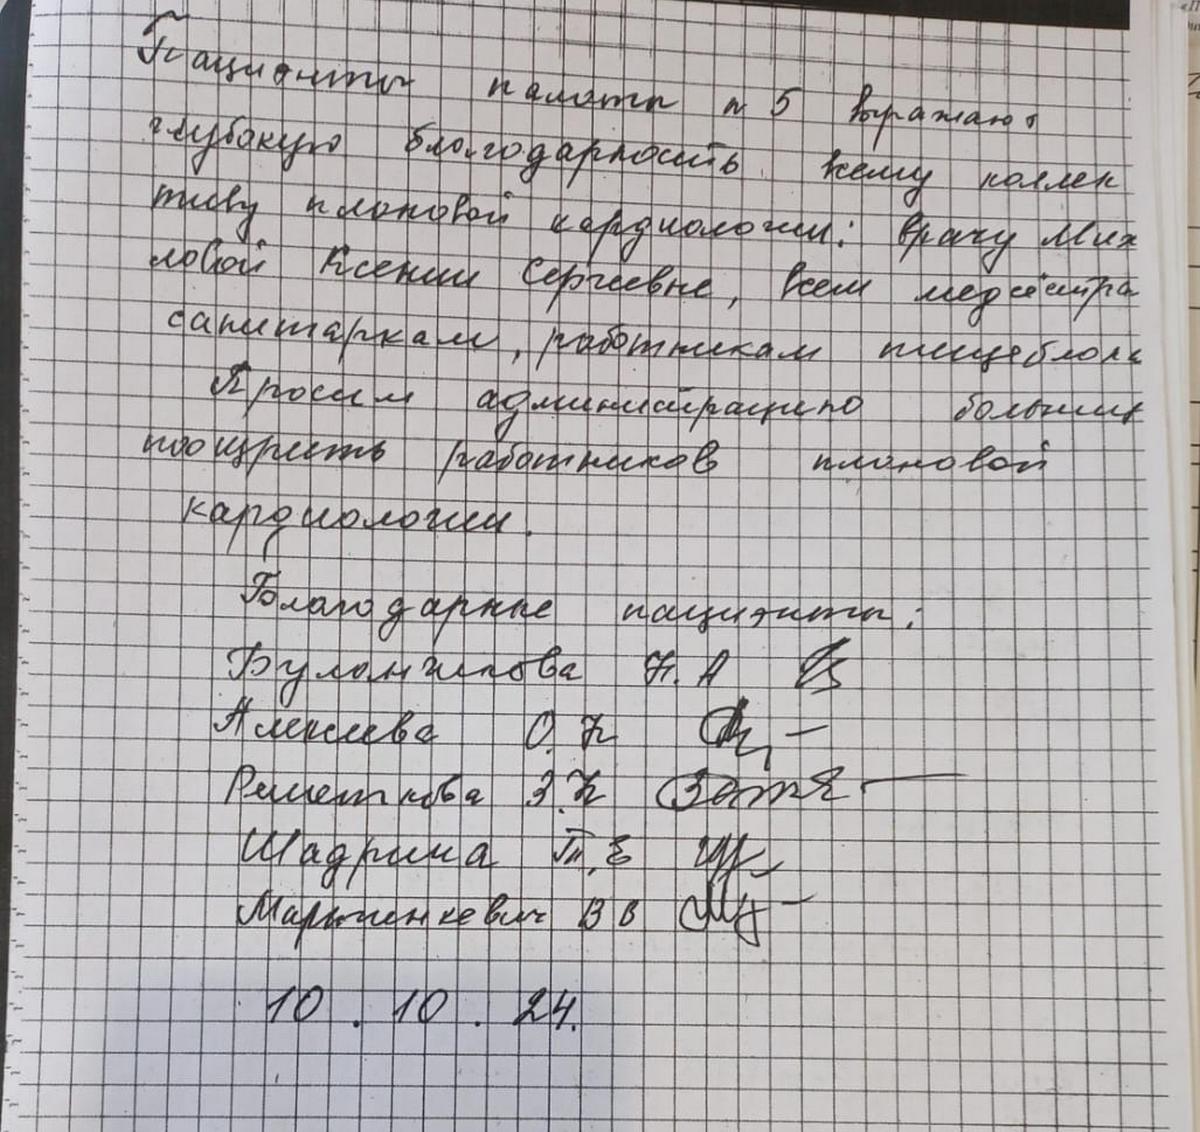 Пациенты палаты № 5 выражают
глубокую благодарность всему коллек
тиву плановой кардиологии: врачу Мих
ловой Ксении Сергеевне, всем медсёстра
санитаркам, работникам пищеблока
Просим администрацию больниц
поощрить работников плановой
кардиологии.
Благодарные пациенты:
Н. А
Алексеева О. Н
Решеткова З. Н
Шадрина Т. Е
Мартинкевич В В
10 . 10 . 24.